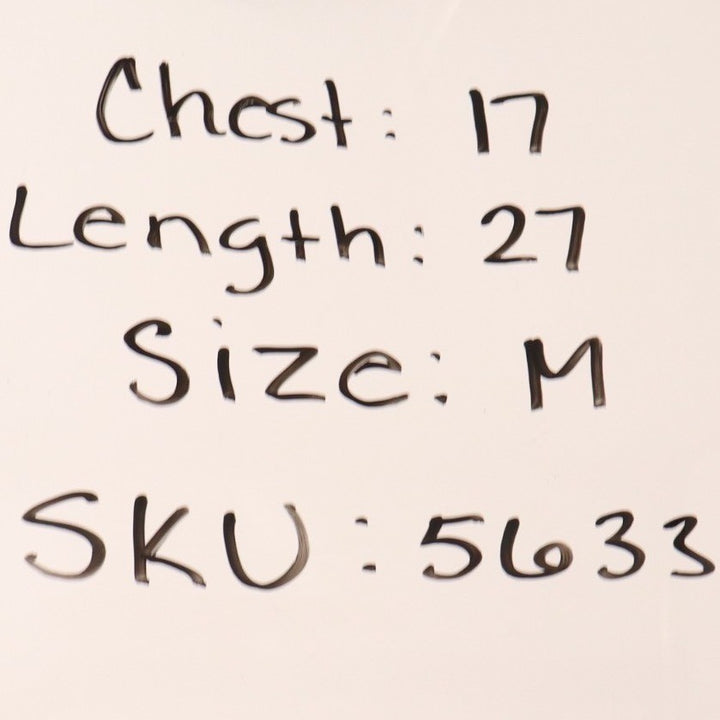 Chest: 17
Length: 27
Size: M
SKU: 5633